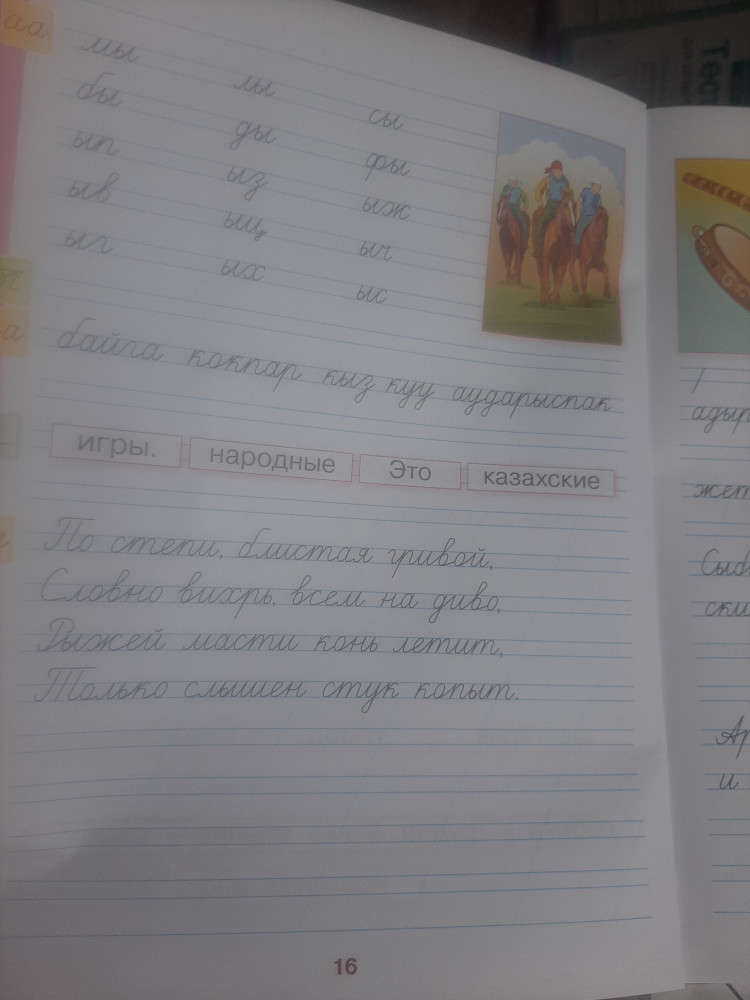 аа
мы лы сы
бы ды фы
ып ыз ыж
ыв ыщ ыч
ыг ых ыс
байга кокпар кыз куу аударыспак
игры. народные Это казахские
По степи, блистая гривой,
Словно вихрь, всем на диво,
Рыжей масти конь летит,
Только слышен стук копыт.
16
Тес